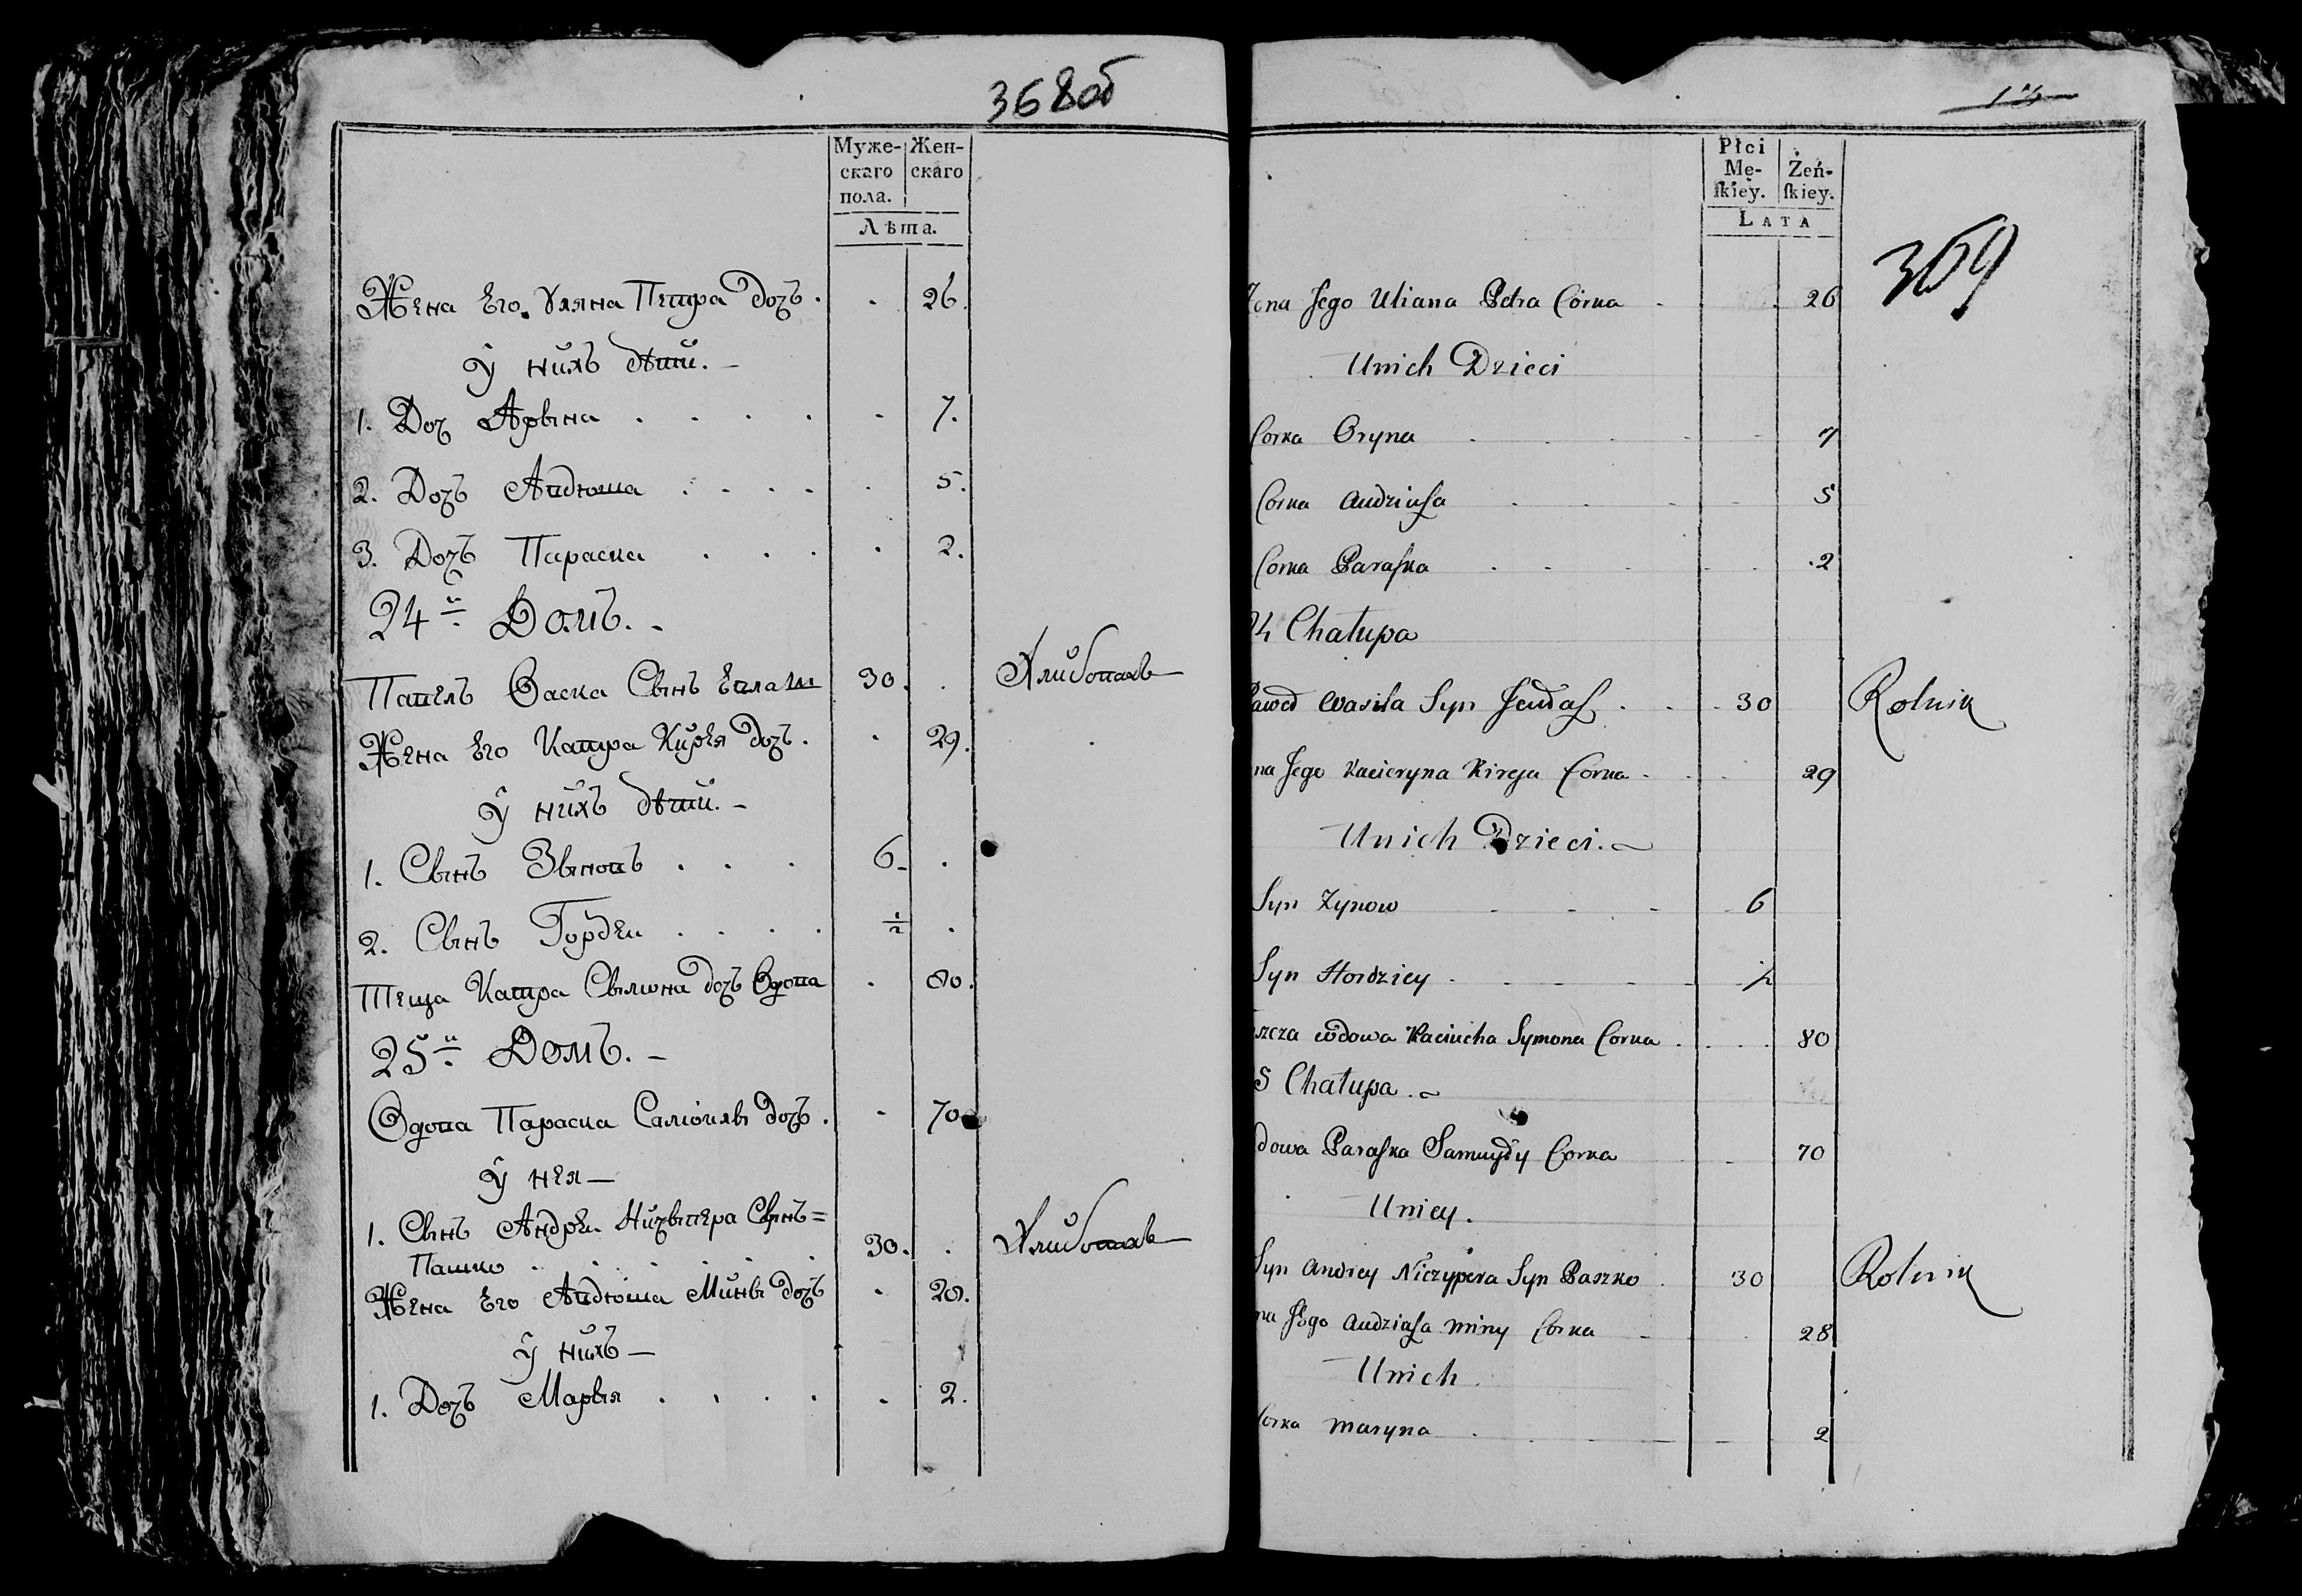 368об
Муже-
скаго
пола.
Жен-
скаго
Лѣта.
Жена Его Уляна Петра дочъ . . 26.
У нихъ дѣти. –
1. Доч Арына . . . . - 7.
2. Дочъ Авдюша . . . . . 5.
3. Дочъ Параска . . . . 2.
24й Домъ. –
Павелъ Васка Сынъ 30. . Хлибопахъ
Жена Его Катра Кирея дочъ . . 29.
У нихъ дѣти. –
1. Сынъ Зыновъ . . . 6 .
2. Сынъ Гордеи . . . . ½ .
Теща Катра Сымона дочъ Вдова . 80.
25й Домъ. –
Вдова Параска дочъ . - 70
У нея –
1. Сынъ Андреи Ничыпера Сынъ =
Пашко . . . . . 30. . Хлибопахъ
Жена Его Авдюша Мины дочъ . 28.
У нихъ –
1. Дочъ Марыя . . . . . 2.
Płci
Mę-
ſkiey.
Żeń-
ſkiey.
LATA
369
Żena Jego Uliana Petra Córka . . 26
Unich Dzieci
Corka Oryna . . . . . 7
Corka Audziuſa . . . . 5
Corka Paraſka . . . . . 2
24 Chałupa
Paweł Wasila Syn . . . 30 Rolnik
na Jego Kacieryna Kireja Corka . . . 29
Unich Dzieci.
Syn Zynow . . . 6
Syn Hordziey . . . . . ½
szcza wdowa Kaciucha Symona Corka . . . . 80
5 Chałupa.
dowa Paraſka Corka . 70
Uniey.
Syn Andrey Niczypera Syn Paszko . 30 Rolnik
na Jego Audziuſa Miny Corka . . 28
Unich
Corka Maryna . . . . . 2